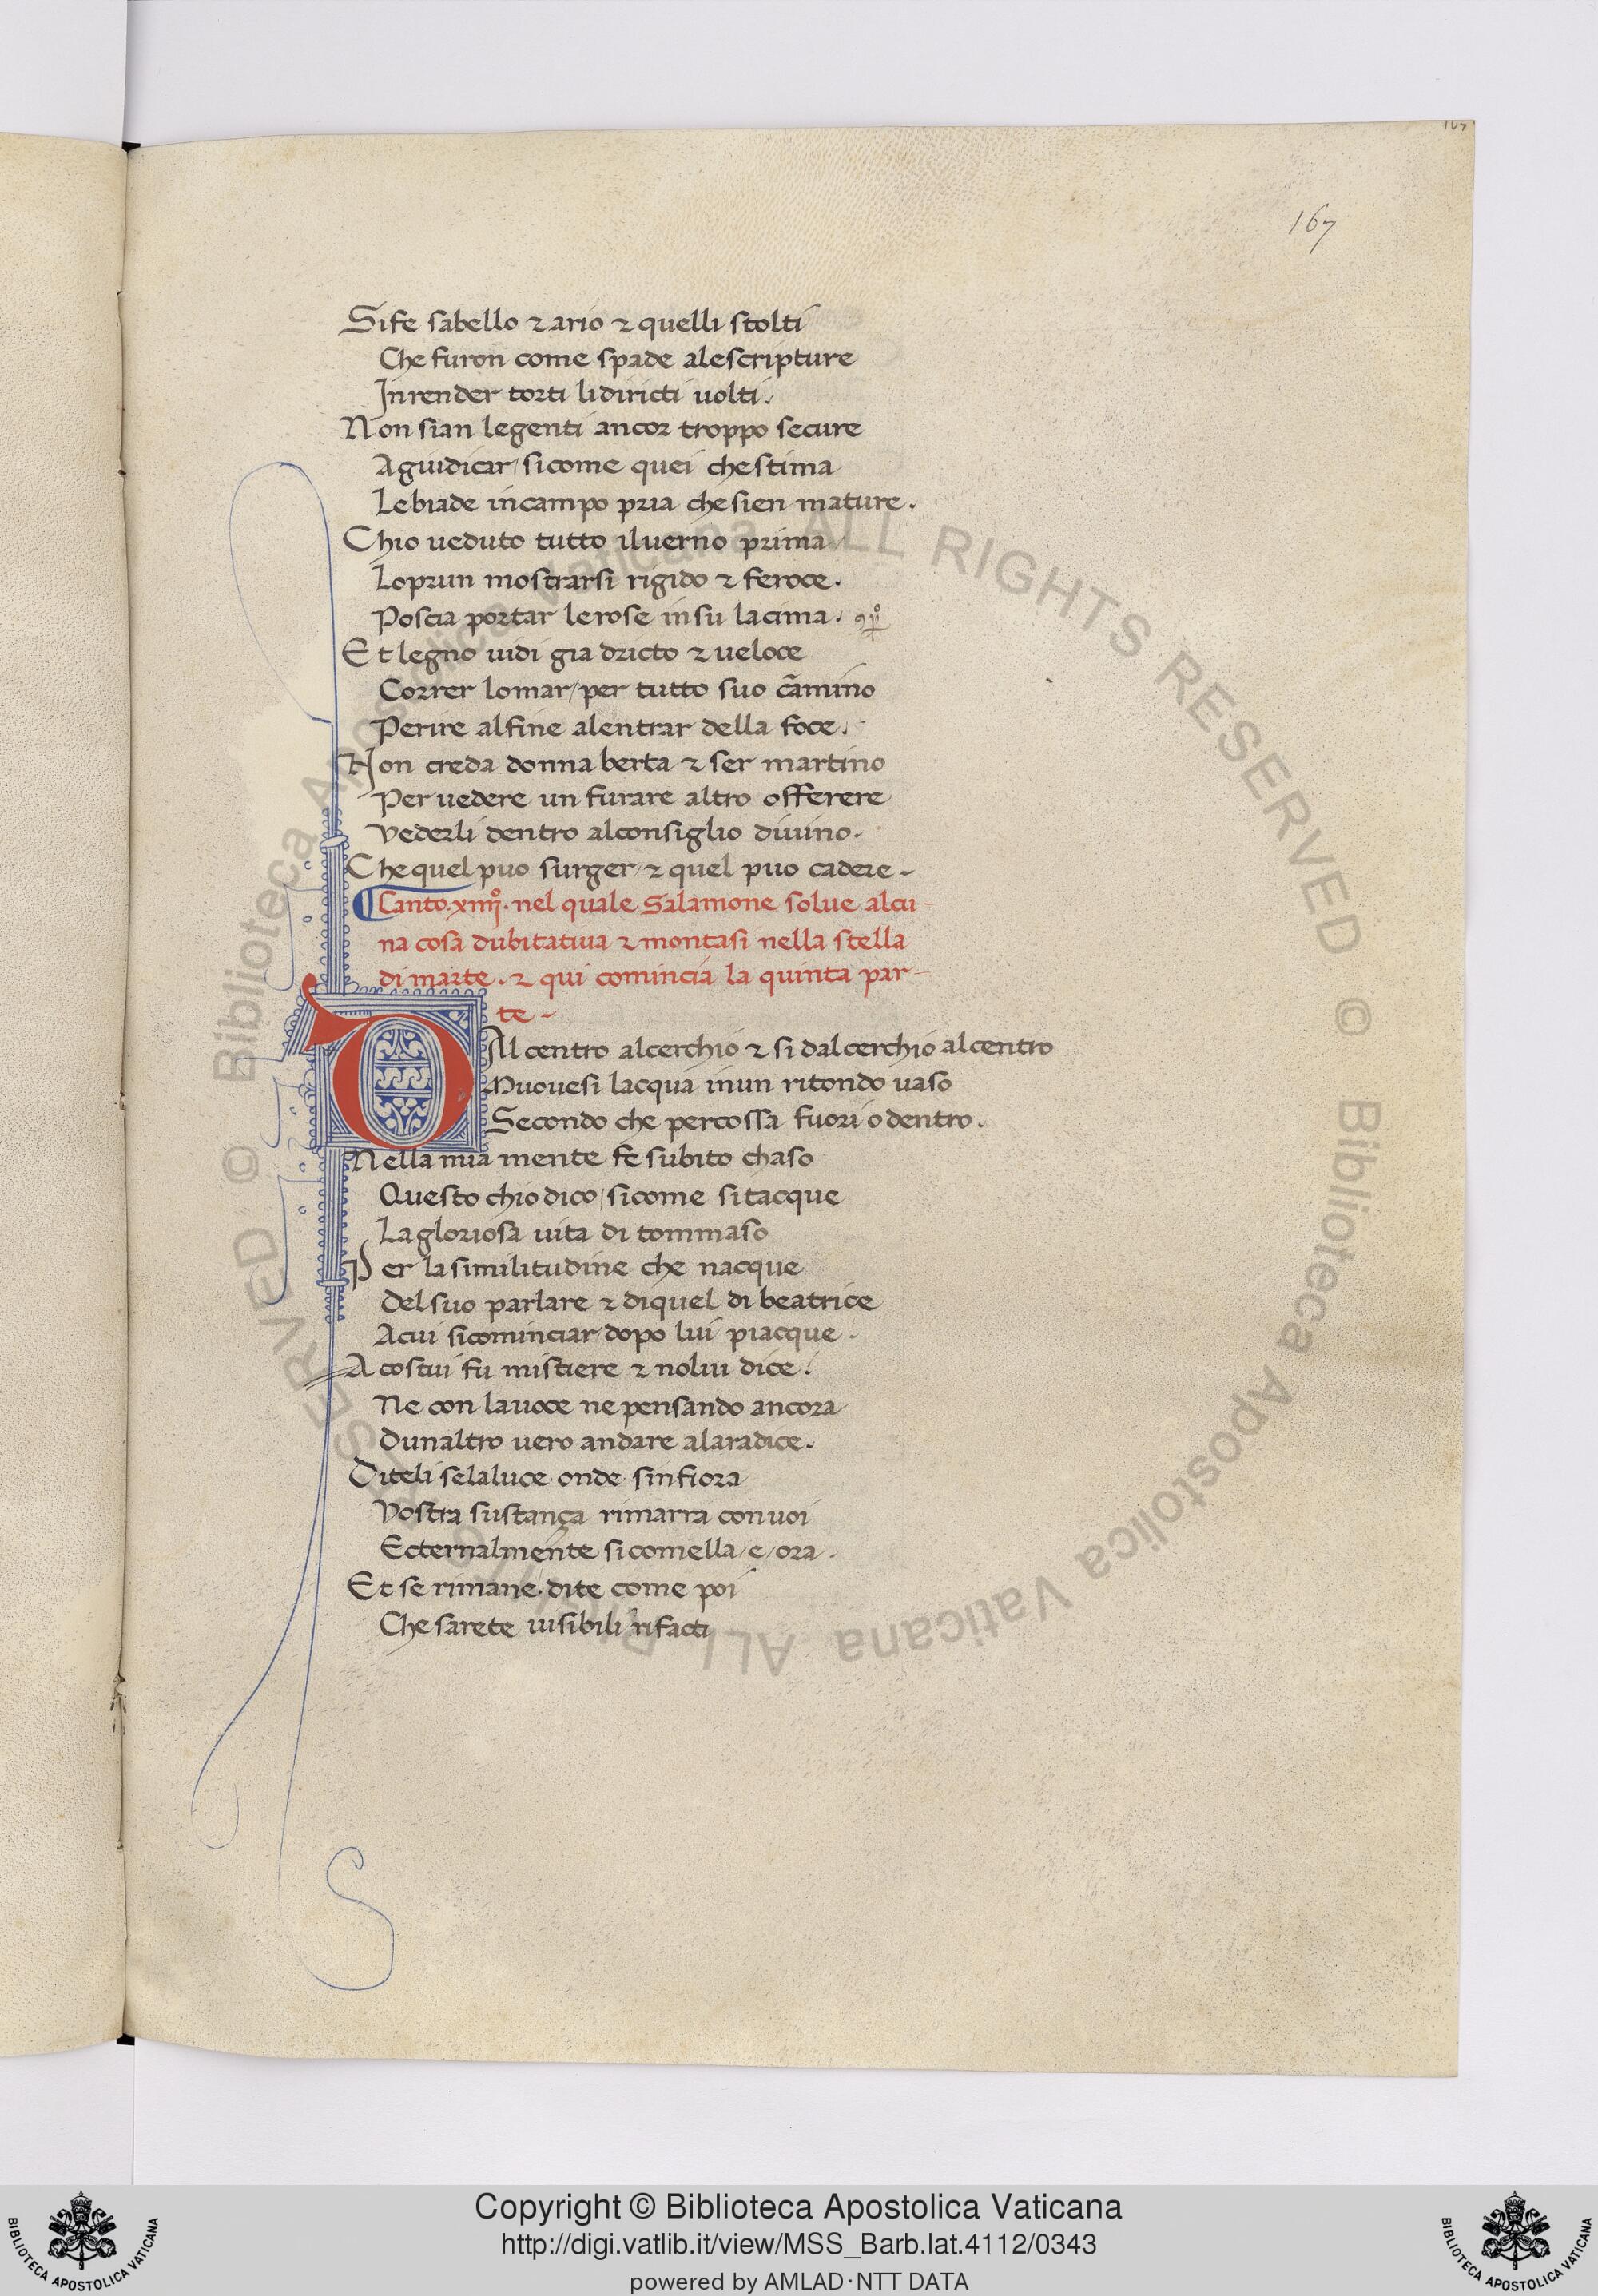 167
Sife sabello ⁊ ario ⁊ quelli stolti
Che furon come spade alescripture
Inrender torti lidiricti uolti.
Non sian legenti ancor troppo secure
Aguidicar/sicome quei chestima
Lebiade incampo pria chesien mature.
Chio ueduto tutto iluerno prima
Loprun mostrarsi rigido ⁊ feroce.
Poscia portar lerose insu lacima.
Et legno uidi gia dricto ⁊ ueloce
Correr lomar/per tutto suo cãmino
Perire alfine alentrar della foce.
Non creda donna berta ⁊ ser martino
Per uedere un furare altro offerere
Vederli dentro alconsiglio diuino.
Che quel puo surger/⁊ quel puo cadere.
Canto.xiiij°.nel quale Salamone solue alcu-
na cosa dubitatiua ⁊ montasi nella stella
di marte. ⁊ qui comincia la quinta par-
te.
DAl centro alcerchio ⁊ si dalcerchio alcentro
Muouesi lacqua inun ritondo uaso
Secondo che percossa fuori odentro.
Nella mia mente fe subito chaso
Questo chio dico/sicome sitacque
Lagloriosa uita di tommaso
Per lasimilitudine che nacque
Delsuo parlare ⁊ diquel di beatrice
Acui sicominciar/dopo lui piacque.
A costui fu mistiere ⁊ nolui dice.
Ne con lauoce ne pensando ancora
Dunaltro uero andare alaradice.
Diteli selaluce onde sinfiora
Vostra sustança rimarra conuoi
Ecternalmente sicomella/e/ora.
Et se rimane.dite come poi
Che sarete uisibili rifacti
© Biblioteca Apostolica Vaticana ALL RIGHTS RESERVED © Biblioteca Apostolica Vaticana ALL RIGHTS RESERVED
Copyright © Biblioteca Apostolica Vaticana
http://digi.vatlib.it/view/MSS_Barb.lat.4112/0343
powered by AMLAD·NTT DATA
BIBLIOTECA APOSTOLICA VATICANA
BIBLIOTECA APOSTOLICA VATICANA